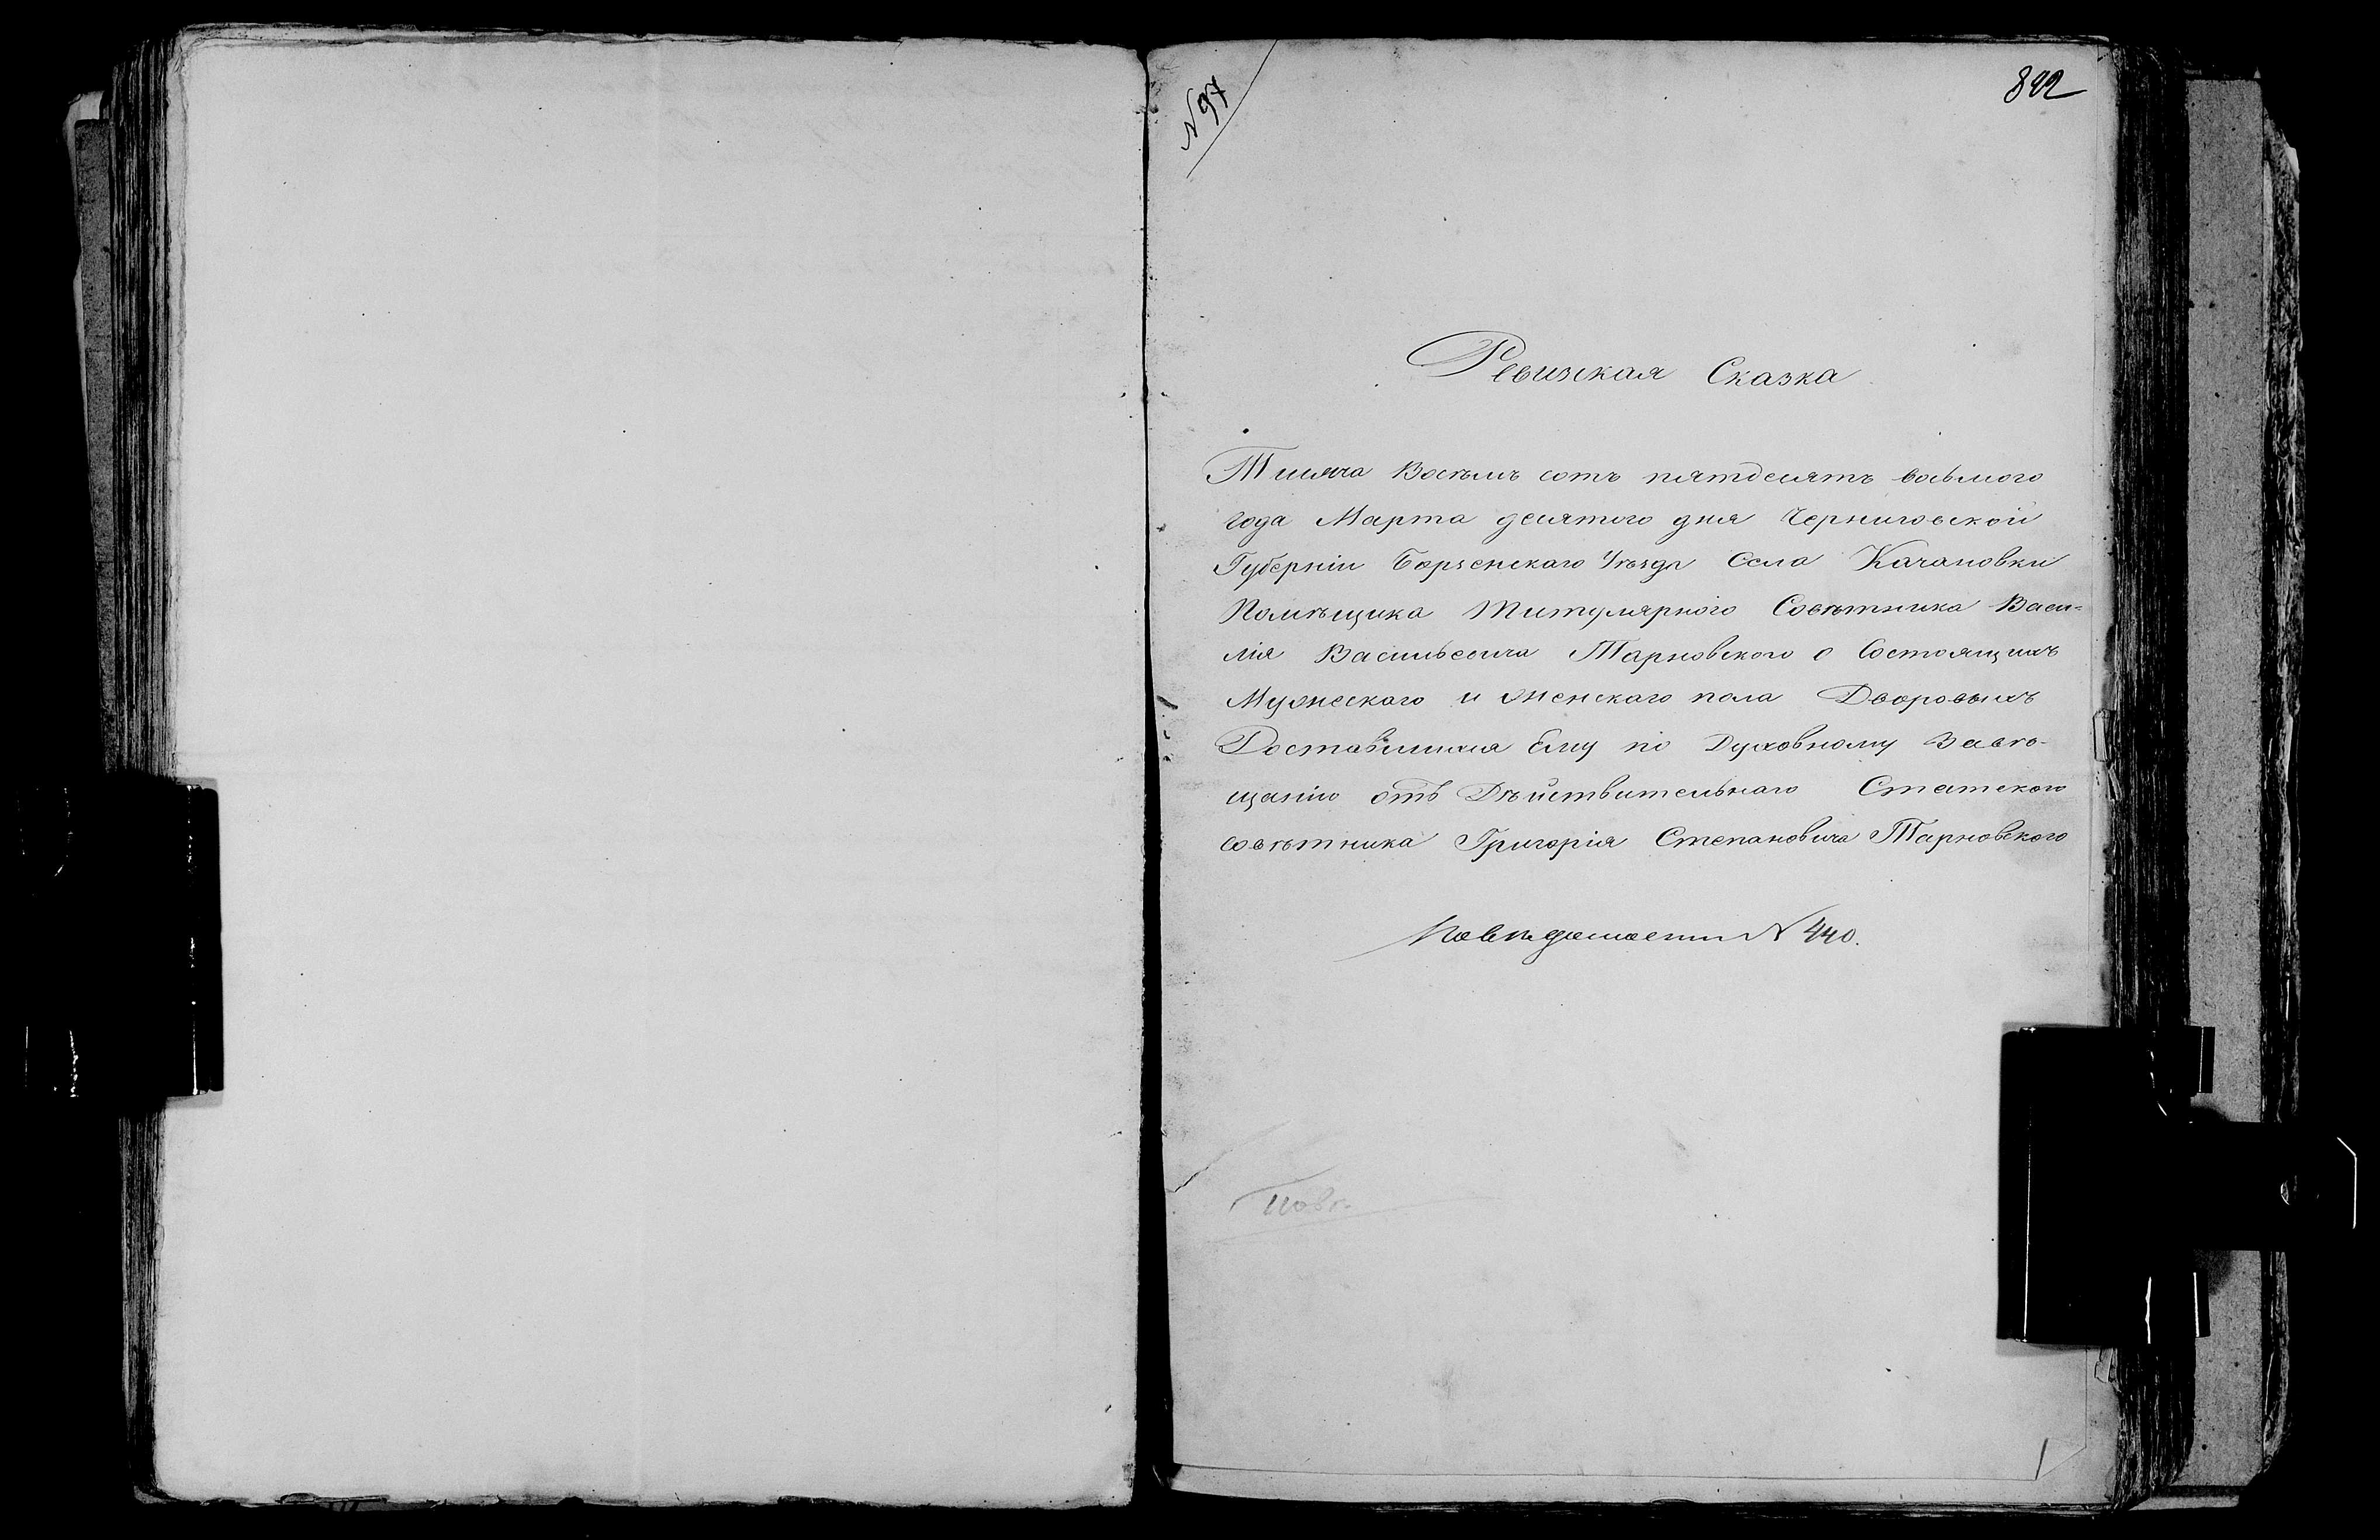 № 97
892
Ревизкая Сказка
Тисяча Восемъ сотъ пятдесятъ восьмого
года Марта десятого дня Черниговской
Губерніи Борзенскаго Уѣзда Села Качановки
Помѣщика Титулярного Совѣтника Васи-
лія Васильевича Тарновского о Состоящихъ
Мужескаго и женскаго пола Дворовыхъ
Доставшихся Ему по Духовному Завѣ-
щанію отъ Дѣйствительнаго Статского
совѣтника Григорія Степановича Тарновского
По вѣдомости № 440.